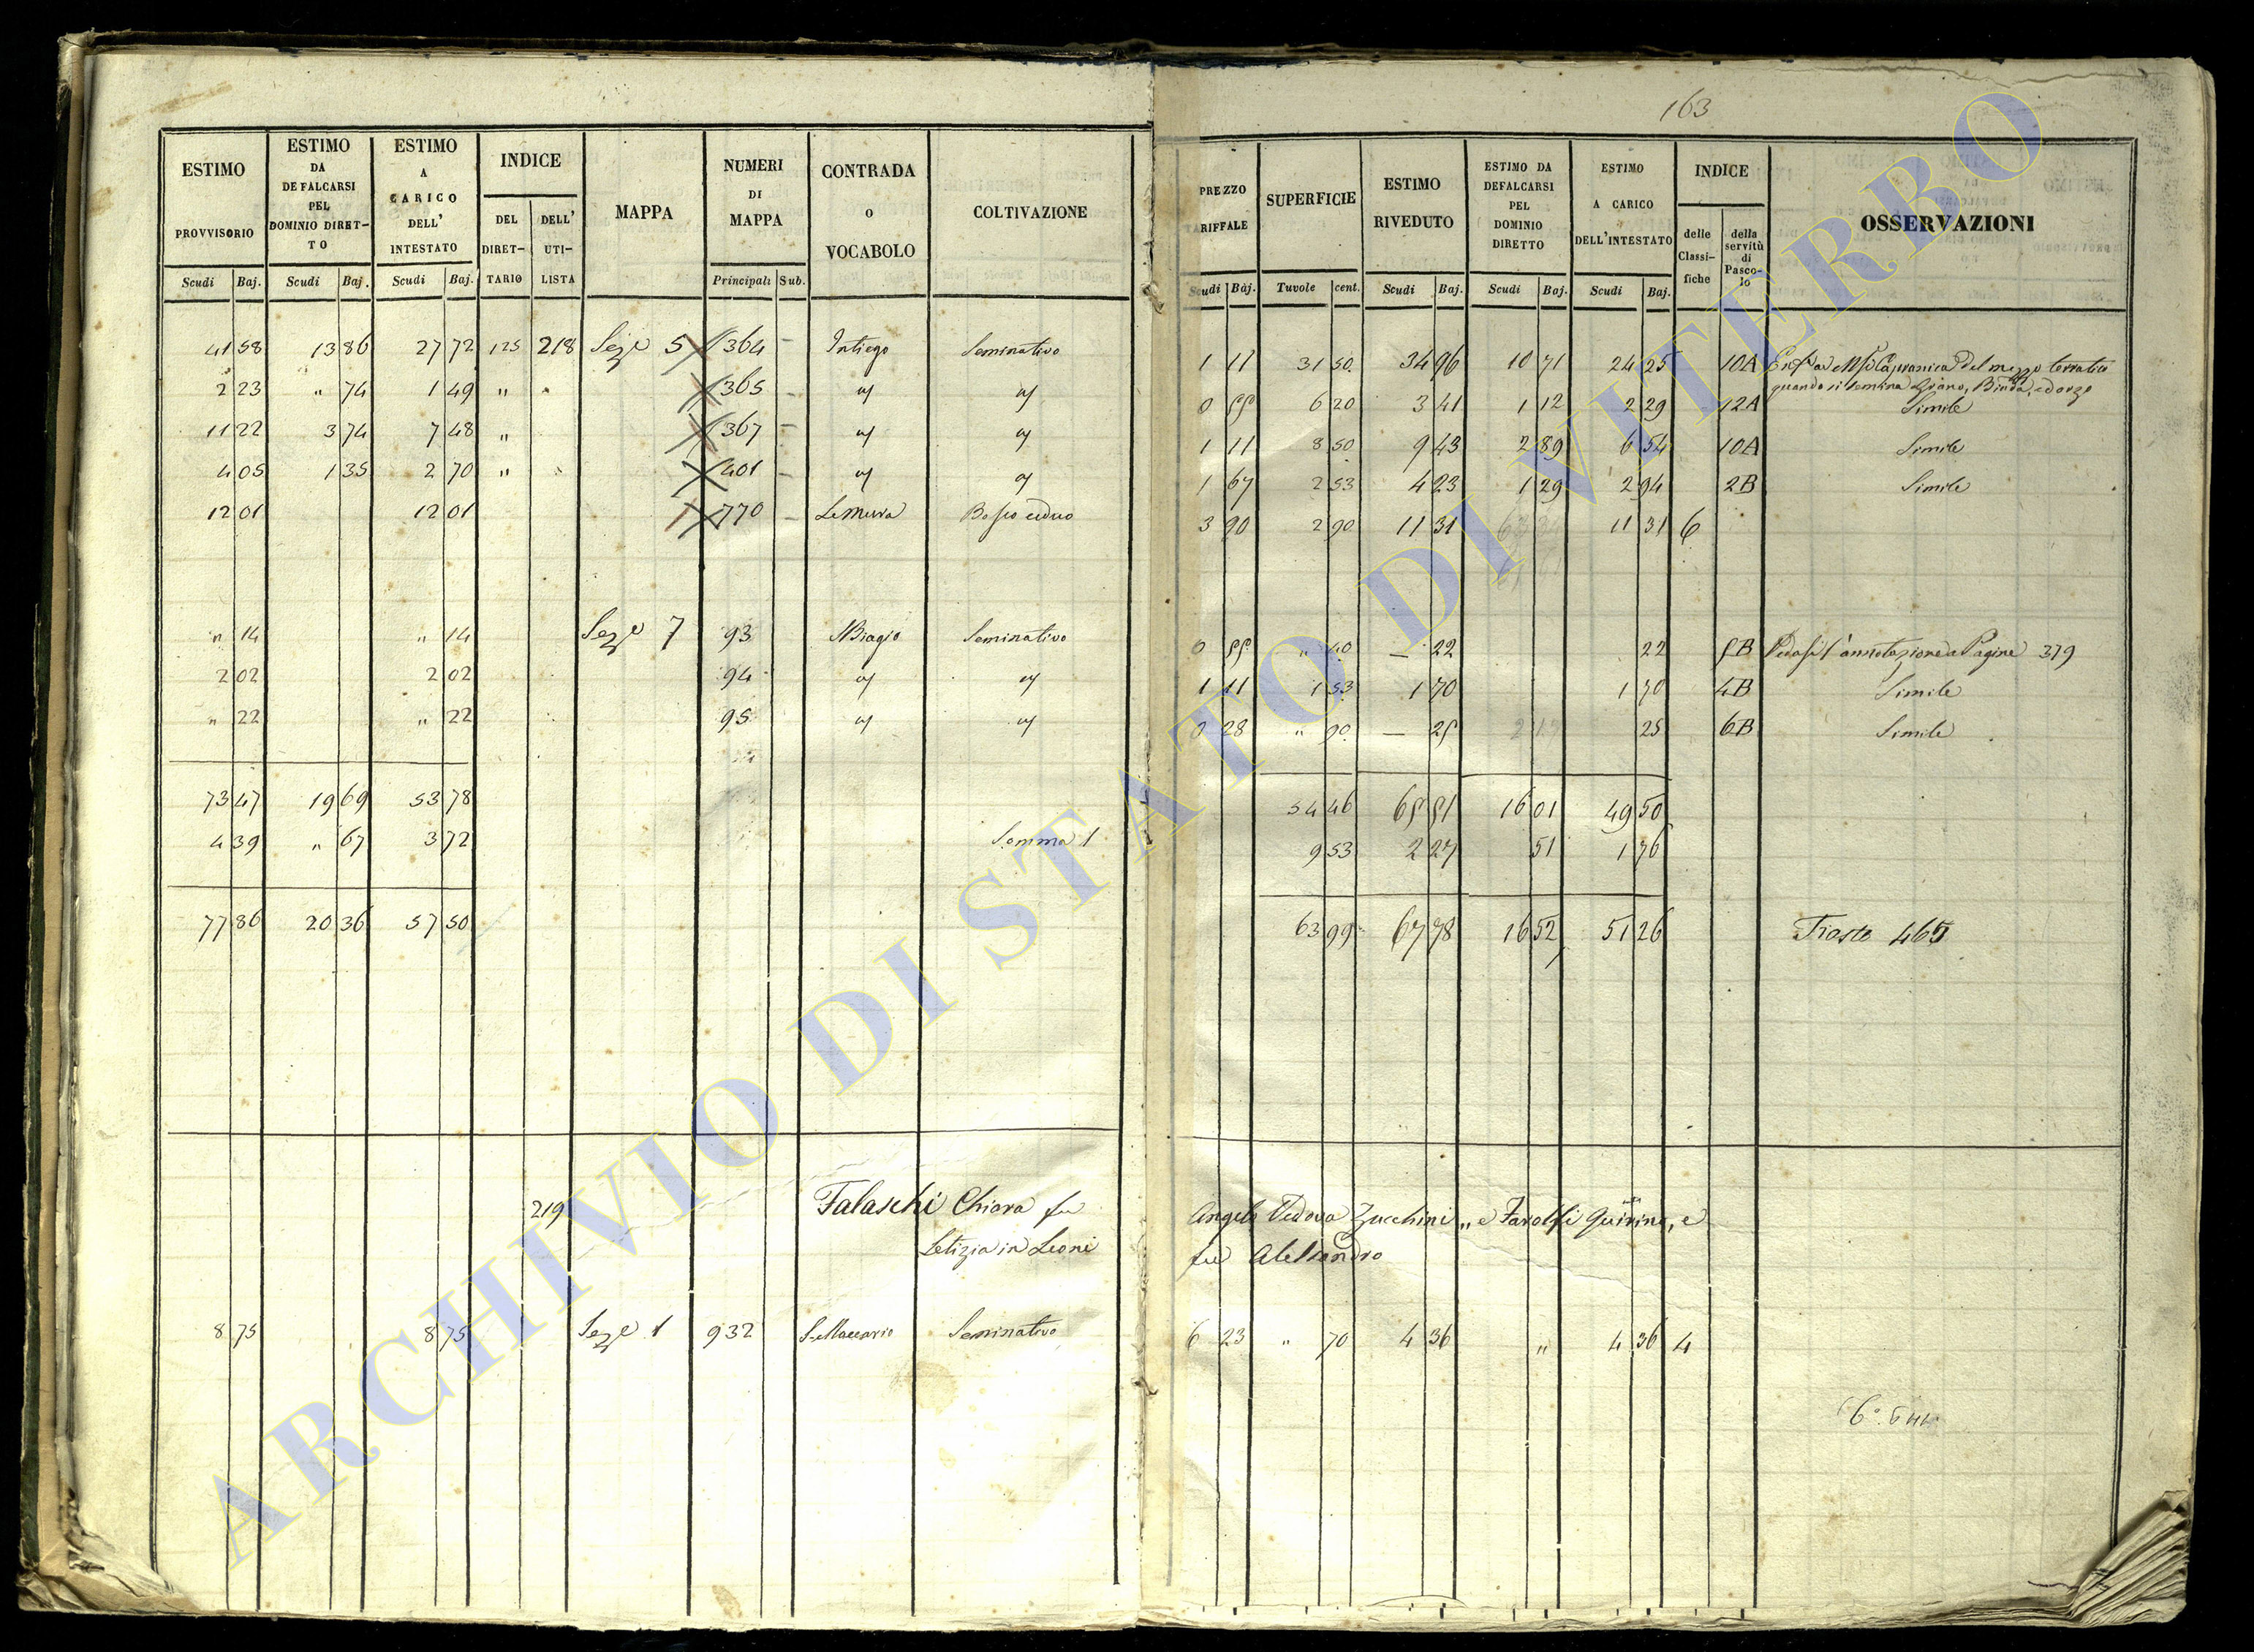 163
ESTIMO PROVVISORIO | ESTIMO DA DEFALCARSI PEL DOMINIO DIRET-TO | ESTIMO A CARICO DELL' INTESTATO | INDICE | MAPPA | NUMERI DI MAPPA | CONTRADA O VOCABOLO | COLTIVAZIONE | PREZZO TARIFFALE | SUPERFICIE | ESTIMO RIVEDUTO | ESTIMO DA DEFALCARSI PEL DOMINIO DIRETTO | ESTIMO A CARICO DELL'INTESTATO | INDICE | OSSERVAZIONI
Scudi | Baj. | Scudi | Baj. | Scudi | Baj. | DEL DIRET-TARIO | DELL' UTI-LISTA | Principali | Sub. | Scudi | Baj. | Tavole | cent. | Scudi | Baj. | Scudi | Baj. | Scudi | Baj. | delle Classi-fiche | della servitù di Pasco-lo
41 58 | 13 86 | 27 72 | 125 | 218 | Sezе 5 | 364 | Intiego | Seminativo | 1 11 | 31 50 | 34 96 | 10 71 | 24 25 | 10A | Capranica del mezzo terratico
quando si semina Grano, Biada, ed orzo
2 23 | " 74 | 1 49 | " | " | 365 | " | " | 0 55 | 6 20 | 3 41 | 1 12 | 2 29 | 12A | Simile
11 22 | 3 74 | 7 48 | " | 367 | " | " | 1 11 | 8 50 | 9 43 | 2 89 | 6 54 | 10A | Simile
4 05 | 1 35 | 2 70 | " | " | 401 | " | " | 1 67 | 2 53 | 4 23 | 1 29 | 2 94 | 2B | Simile
12 01 | 12 01 | 770 | Le Murra | Bosco ceduo | 3 90 | 2 90 | 11 31 | 11 31 | 6
" 14 | " 14 | Seze 7 | 93 | S Biagio | Seminativo | 0 55 | " 40 | — 22 | 22 | 5B | Vedasi l'annotazione a Pagine 379
2 02 | 2 02 | 94 | " | " | 1 11 | 1 53 | 1 70 | 1 70 | 4B | Simile
" 22 | " 22 | 95 | " | " | 0 28 | " 90 | — 25 | 25 | 6B | Simile
73 47 | 19 69 | 53 78 | 54 46 | 65 51 | 16 01 | 49 50
4 39 | " 67 | 3 72 | Somma 1 | 9 53 | 2 27 | 51 | 1 76
77 86 | 20 36 | 57 50 | 63 99 | 67 78 | 16 52 | 51 26 | 465
219 | Falaschi Chiara fu Angelo Vedova Zucchini, e Farolfi Quirino, e
Letizia in Leoni fu Alessandro
8 75 | 8 75 | Seze 1 | 932 | S. Maccario | Seminativo | 6 23 | " 70 | 4 36 | " | 4 36 | 4
ARCHIVIO DI STATO DI VITERBO